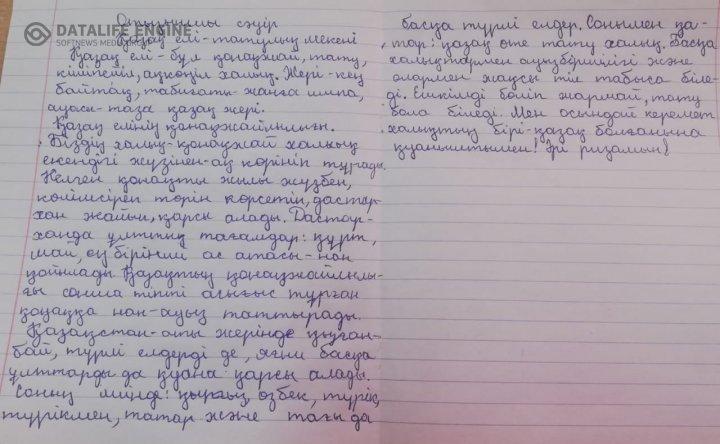 DATALIFE ENGINE
SOFTNEWS MEDIA GROUP
Отызыншы сәуір
Қазақ елі-татулық мекені
Қазақ елі - бұл қонақжай, тату,
кішіпейіл, ақкөңіл халық. Жері-кең
байтақ, табиғаты-жанға шипа,
ауасы-таза қазақ жері.
Қазақ елінің қонақжайлылығын.
Біздің халық-қонақжай халық
екендігі жүзінен-ақ көрініп тұрады.
Келген қонақты жылы жүзбен,
күлімсіреп төрін көрсетіп, дастар-
хан жайып, қарсы алады. Дастар-
ханда ұлттық тағамдар: құрт,
май, ең бірінші ас атасы-нан
қойылады. Қазақтың қонақжайлылы-
ғы сонша тіпті асығыс тұрған
қонаққа нан-ауыз таттырады.
Қазақстан-аты жерінде қызған-
бай, түрлі елдерді де, яғни басқа
ұлттарды да қуана қарсы алады.
Соның мінде: қырғыз, өзбек, түрік,
түрікмен, татар және тағы да
басқа түрлі елдер. Сонымен қа-
тар: қазақ өте тату халық. Басқа
халықтармен ауызбіршілігі және
олармен жақсы тіл табыса біле-
ді. Ешкімді бөліп жармай, тату
бола біледі. Мен осындай керемет
халықтың бірі-қазақ болғаныма
қуаныштымын! Әрі ризамын!